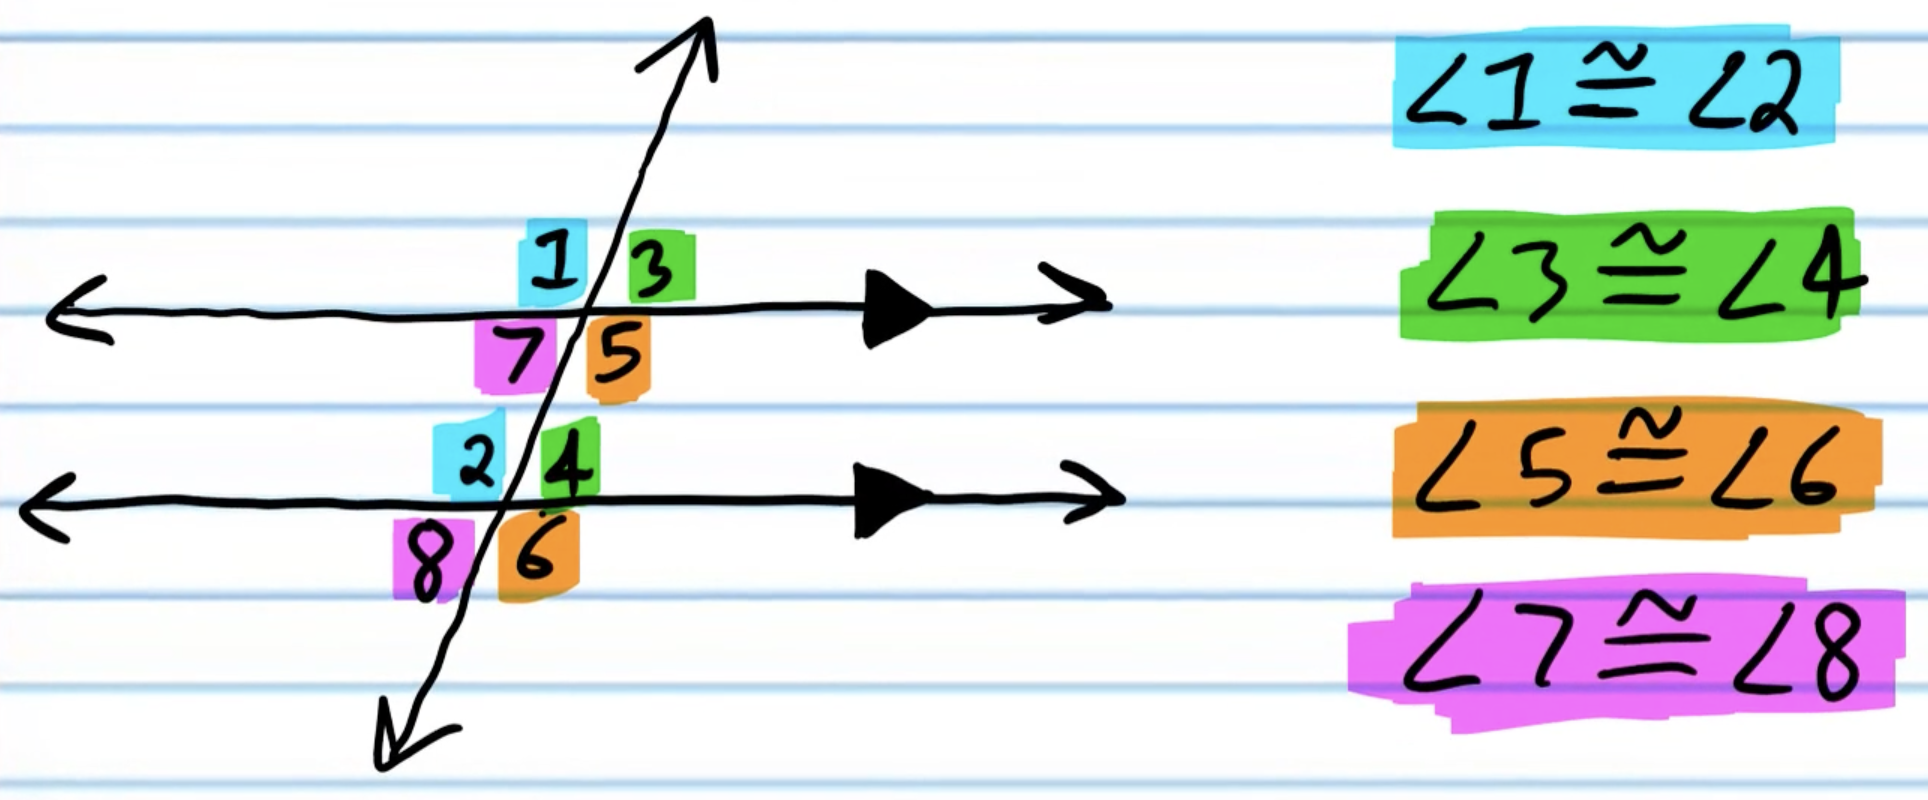 1 3
7 5
2 4
8 6
∠1 ≅ ∠2
∠3 ≅ ∠4
∠5 ≅ ∠6
∠7 ≅ ∠8